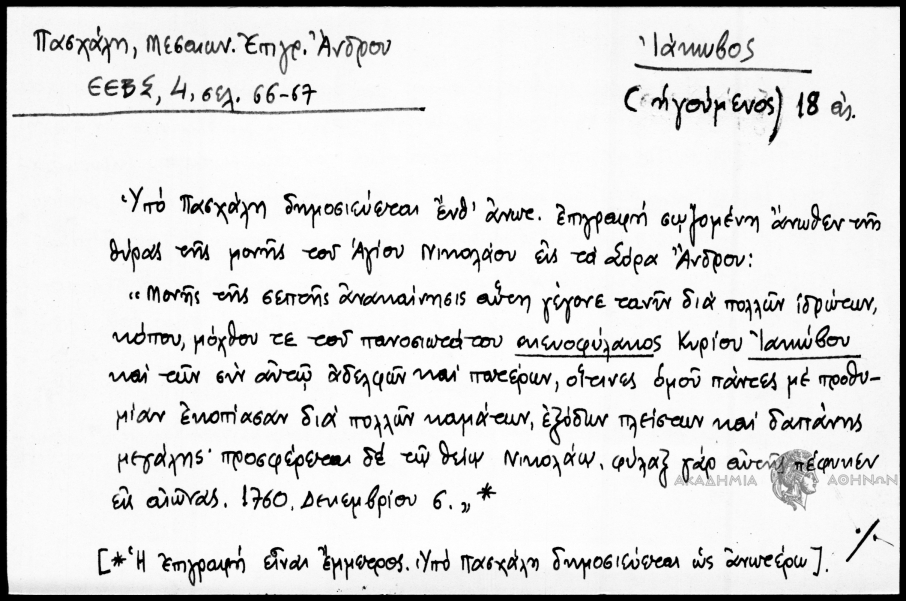 Πασχάλη, Μεσαιων. Ἐπιγρ. Ἄνδρου
ΕΕΒΣ, 4, σελ. 66-67
Ἰάκωβος
(ἡγούμενος) 18 αἰ.
Ὑπό Πασχάλη δημοσιεύεται ἔνθ' ἄνωτ. ἐπιγραφή σῳζομένη ἄνωθεν τῆς
θύρας τῆς μονῆς τοῦ Ἁγίου Νικολάου εἰς τά Ἄνδρου:
"Μονῆς τῆς σεπτῆς ἀνακαίνησις αὕτη γέγονε τανῦν διά πολλῶν ἱδρώτων,
κόπου, μόχθου τε τοῦ πανοσιωτάτου σκευοφύλακος Κυρίου Ἰακώβου
καί τῶν σύν αὐτῷ ἀδελφῶν καί πατέρων, οἵτινες ὁμοῦ πάντες μέ προθυ-
μίαν ἐκοπίασαν διά πολλῶν καμάτων, ἐξόδων πλείστων καί δαπάνης
μεγάλης· προσφέρεται δέ τῷ θείῳ Νικολάῳ. φύλαξ γάρ αὐτῆς πέφυκεν
εἰς αἰῶνας. 1760. Δεκεμβρίου 6."*
ΑΚΑΔΗΜΙΑ ΑΘΗΝΩΝ
[*Ἡ ἐπιγραφή εἶναι ἔμμετρος. Ὑπό Πασχάλη δημοσιεύεται ὡς ἀνωτέρω].
./.